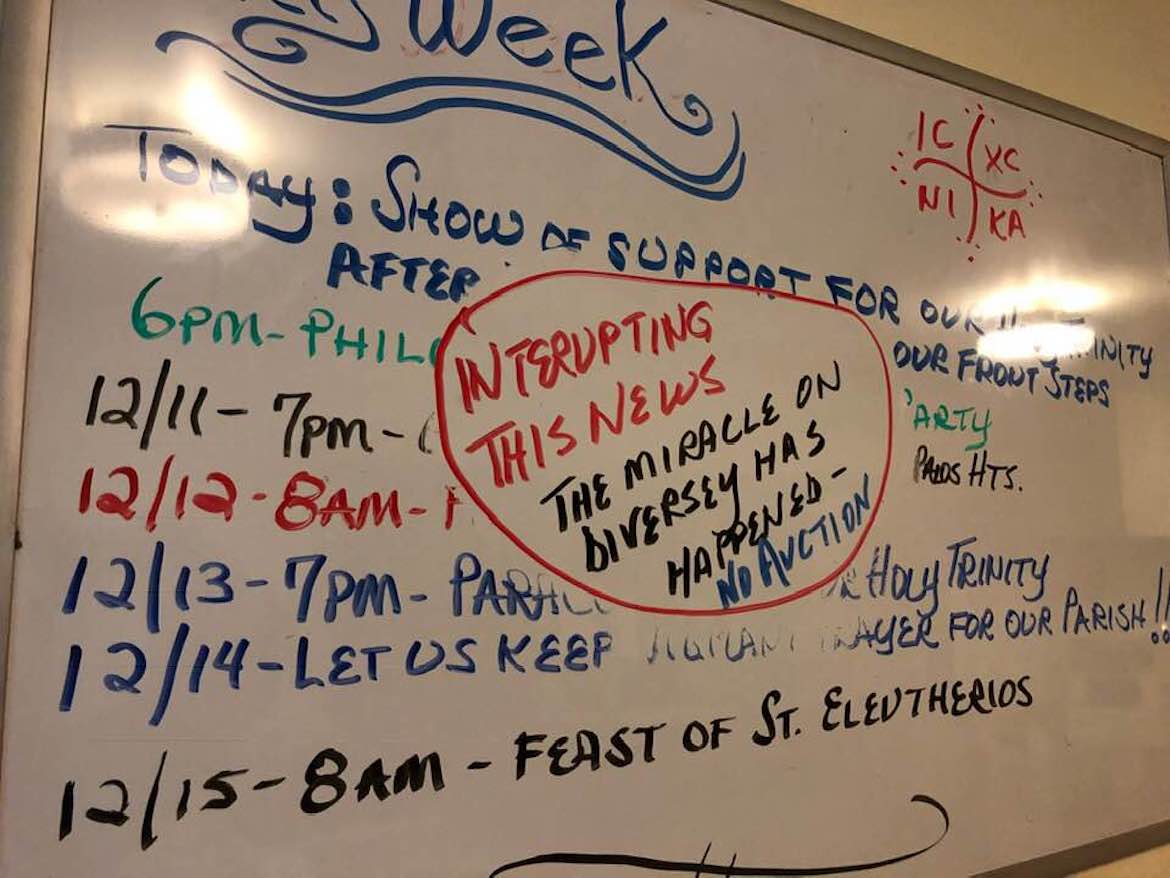 Week
IC XC
NI KA
TODAY: SHOW OF SUPPORT FOR OUR
AFTER
OUR FRONT STEPS
6PM-
12/11- 7pm-
PALOS HTS.
12/12-8AM-
12/13-7PM- HOLY TRINITY
12/14-LET US KEEP FOR OUR PARISH!!
12/15-8AM - FEAST OF ST. ELEUTHERIOS
INTERUPTING
THIS NEWS
THE MIRACLE ON
DIVERSEY HAS
HAPPENED-
NO AUCTION